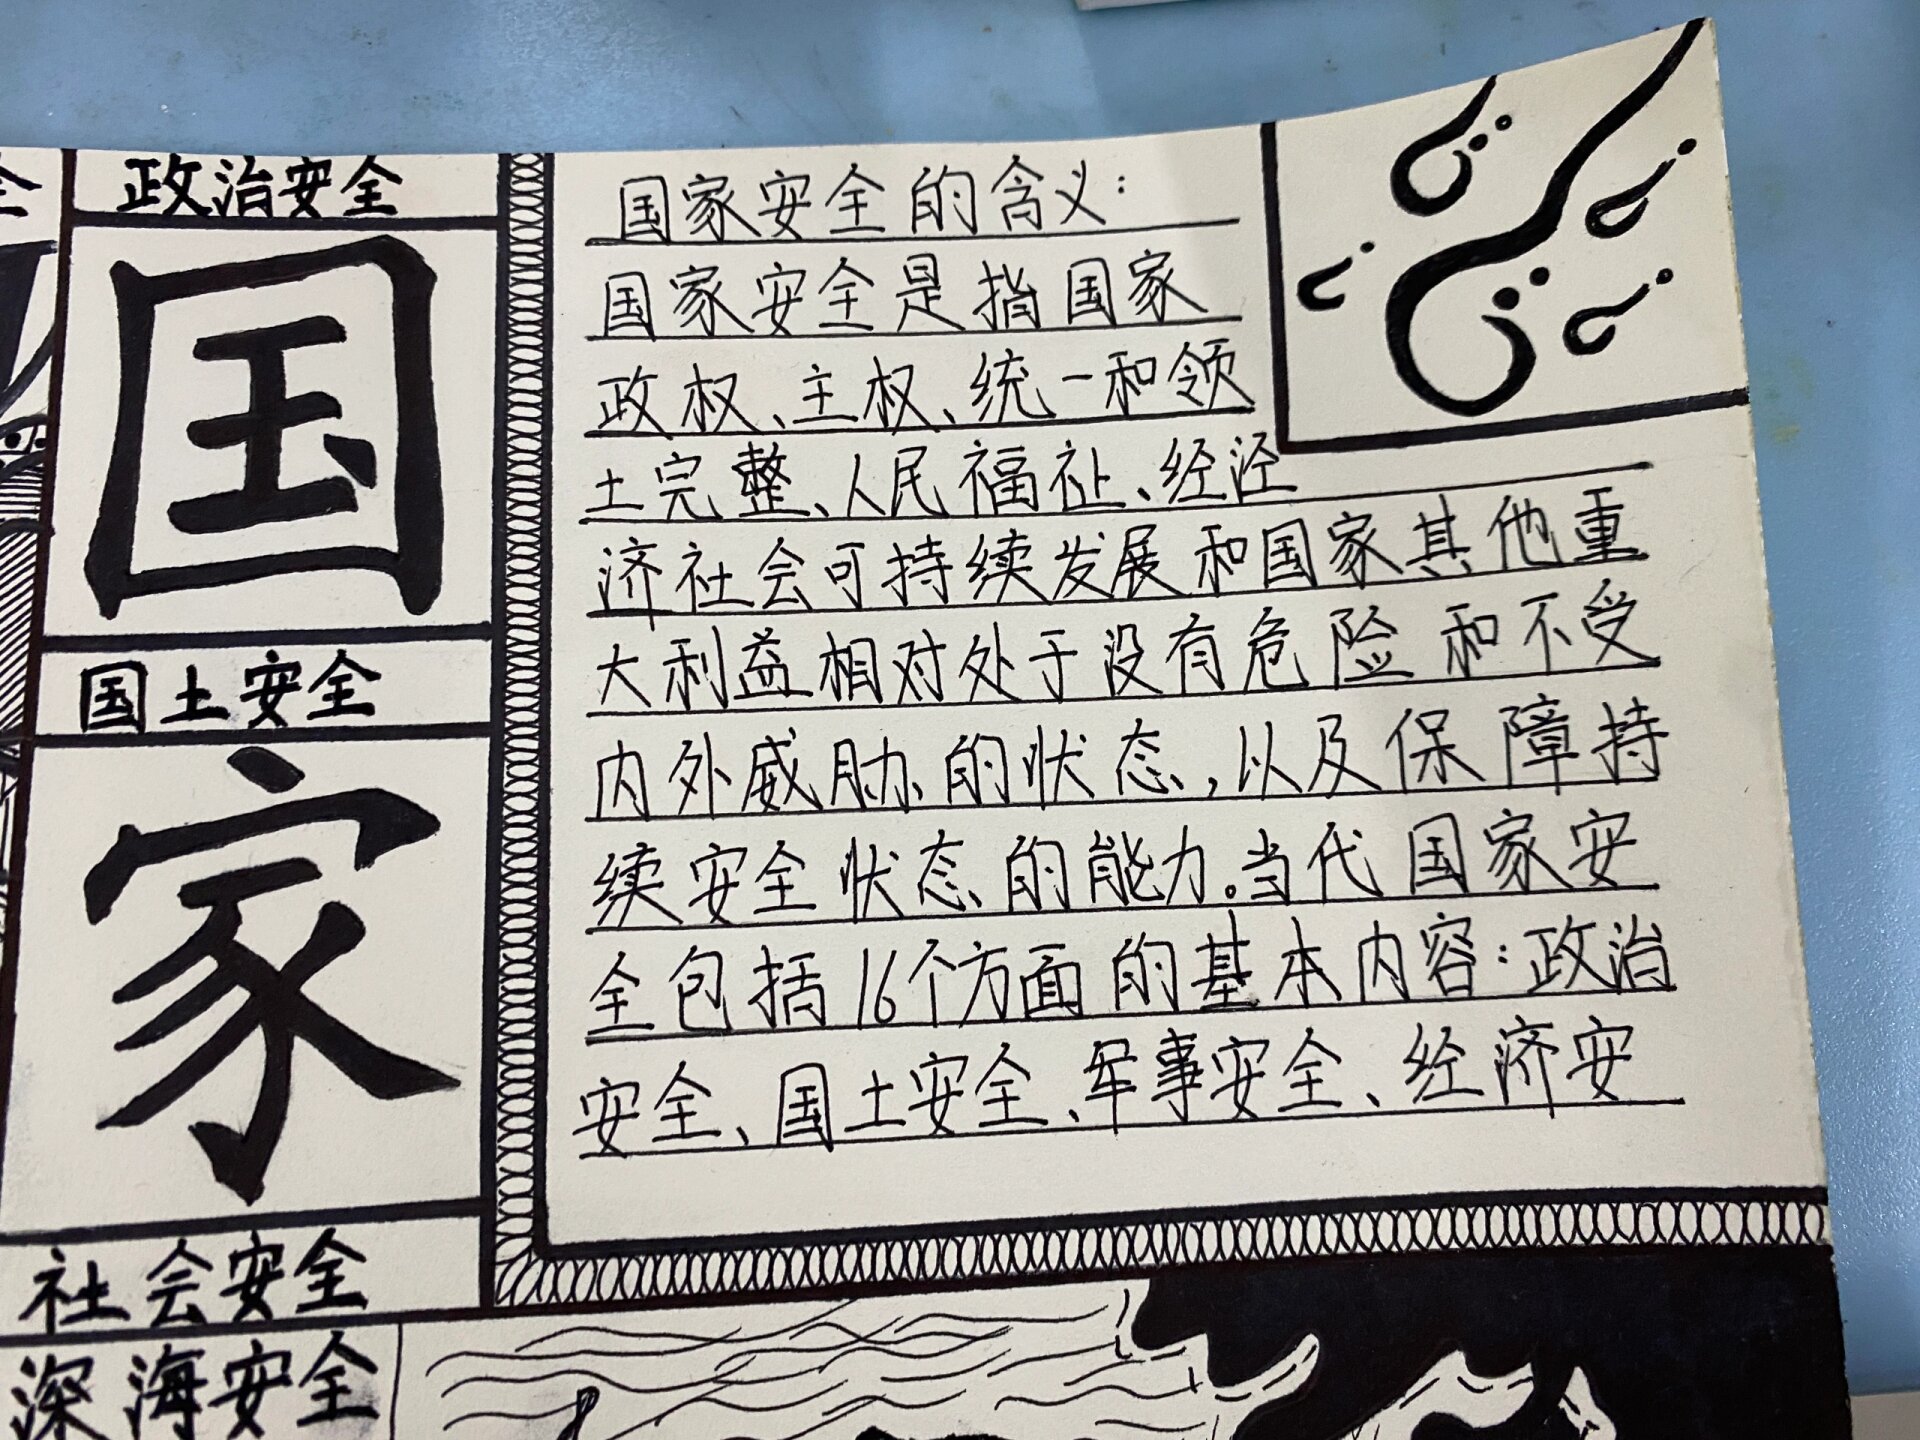 全
政治安全
国
国土安全
家
社会安全
深海安全
国家安全的含义:
国家安全是指国家
政权、主权、统一和领
土完整、人民福祉、经泾
济社会可持续发展和国家其他重
大利益相对处于没有危险和不受
内外威胁的状态,以及保障持
续安全状态的能力。当代国家安
全包括16个方面的基本内容:政治
安全、国土安全、军事安全、经济安